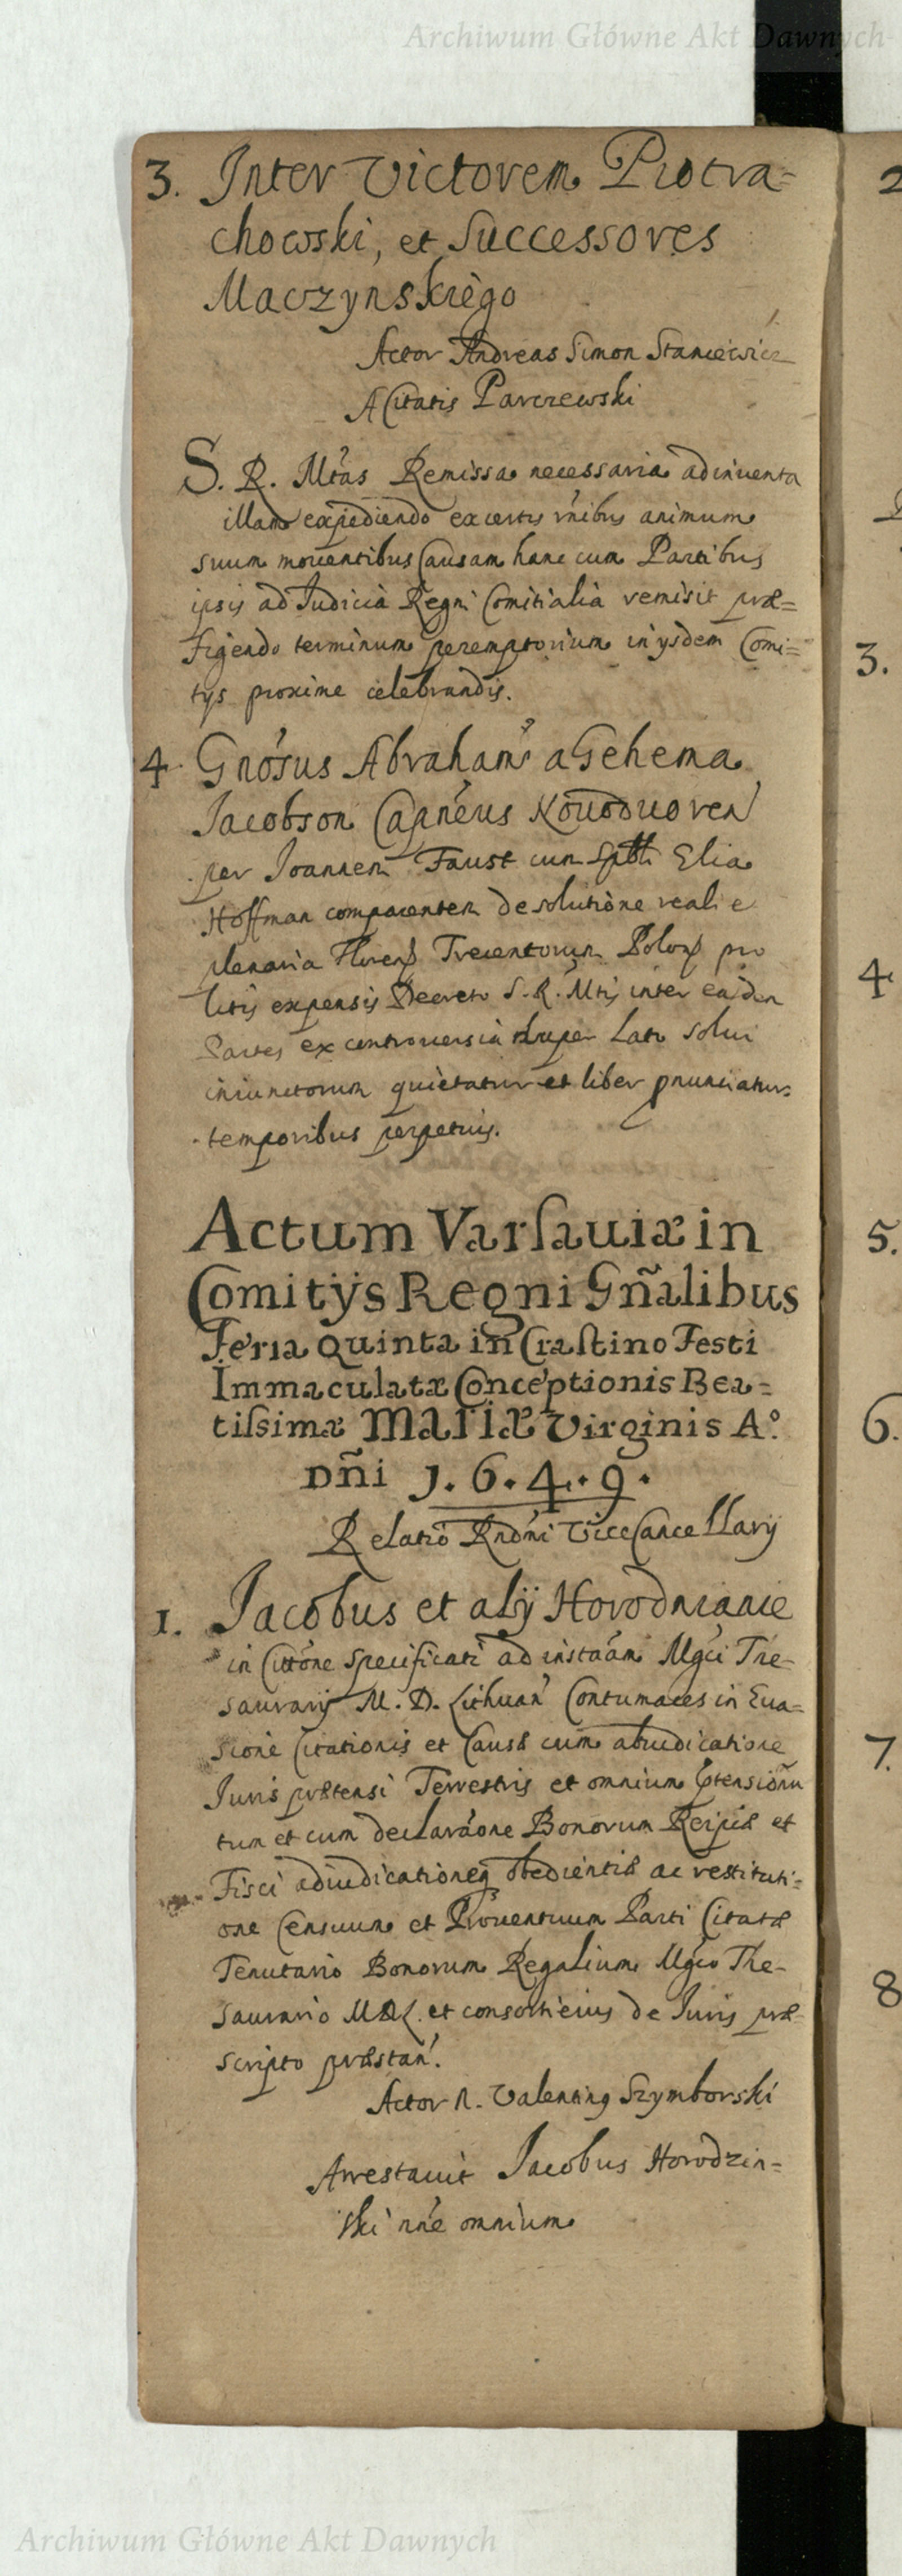 Archiwum Główne Akt Dawnych
3. Inter Victorem Piotra=
chowski, et Successores
Maczynskiego
Actor Andreas Simon Stancewicz
A Citatis Parczewski
S. R. Mtas Remissa necessaria adinuenta
illam expediendo ex certis rnibus animum
suum mouentibus Causam hanc cum Partibus
ipsis ad Iudicia Regni Comitialia remisit præ=
figendo terminum peremptorium in ysdem Comi=
tys proxime celebrandis.
4 Gnosus Abraham a Gehema
Jacobson Capneus Nouoduoren
per Joannem Faust cum Elia
Hoffman comparentem de solutione reali e
plenaria Floren Trecentorum Polon pro
litis expensis Decreto S. R. Mtis inter easdem
Partes ex controuersia nuper lato solui
iniunctorum quietatur et liber pnunciatur
temporibus perpetuis.
Actum Varsauiæ in
Comitÿs Regni Gñalibus
Feria Quinta in Crastino Festi
Immaculatæ Conceptionis Bea=
tissimæ Mariæ Virginis A°.
Dñi 1. 6. 4. 9.
Relatio Rndni ViceCancellarÿ
1. Jacobus et alÿ Horodnianie
in Cittone Specificati ad instaam Mgci The-
saurarÿ M. D. Lithuan Contumaces in Eua=
sione Citationis et Causæ cum abiudicatione
Iuris prætensi Terrestris et omnium ptensionu
tum et cum declaraone Bonorum Reipcæ et
Fisci adiudicationeq obedientiæ ac restituti=
one Censuum et Prouentuum Parti Citatæ
Tenutario Bonorum Regalium Mgco The-
saurario MDL. et consorti eius de Iuris præ-
scripto præstan.
Actor N. Valentinq Szymborski
Arrestauit Jacobus Horodzin=
ski nne omnium
2
3.
4
5.
6.
7.
8
Archiwum Główne Akt Dawnych